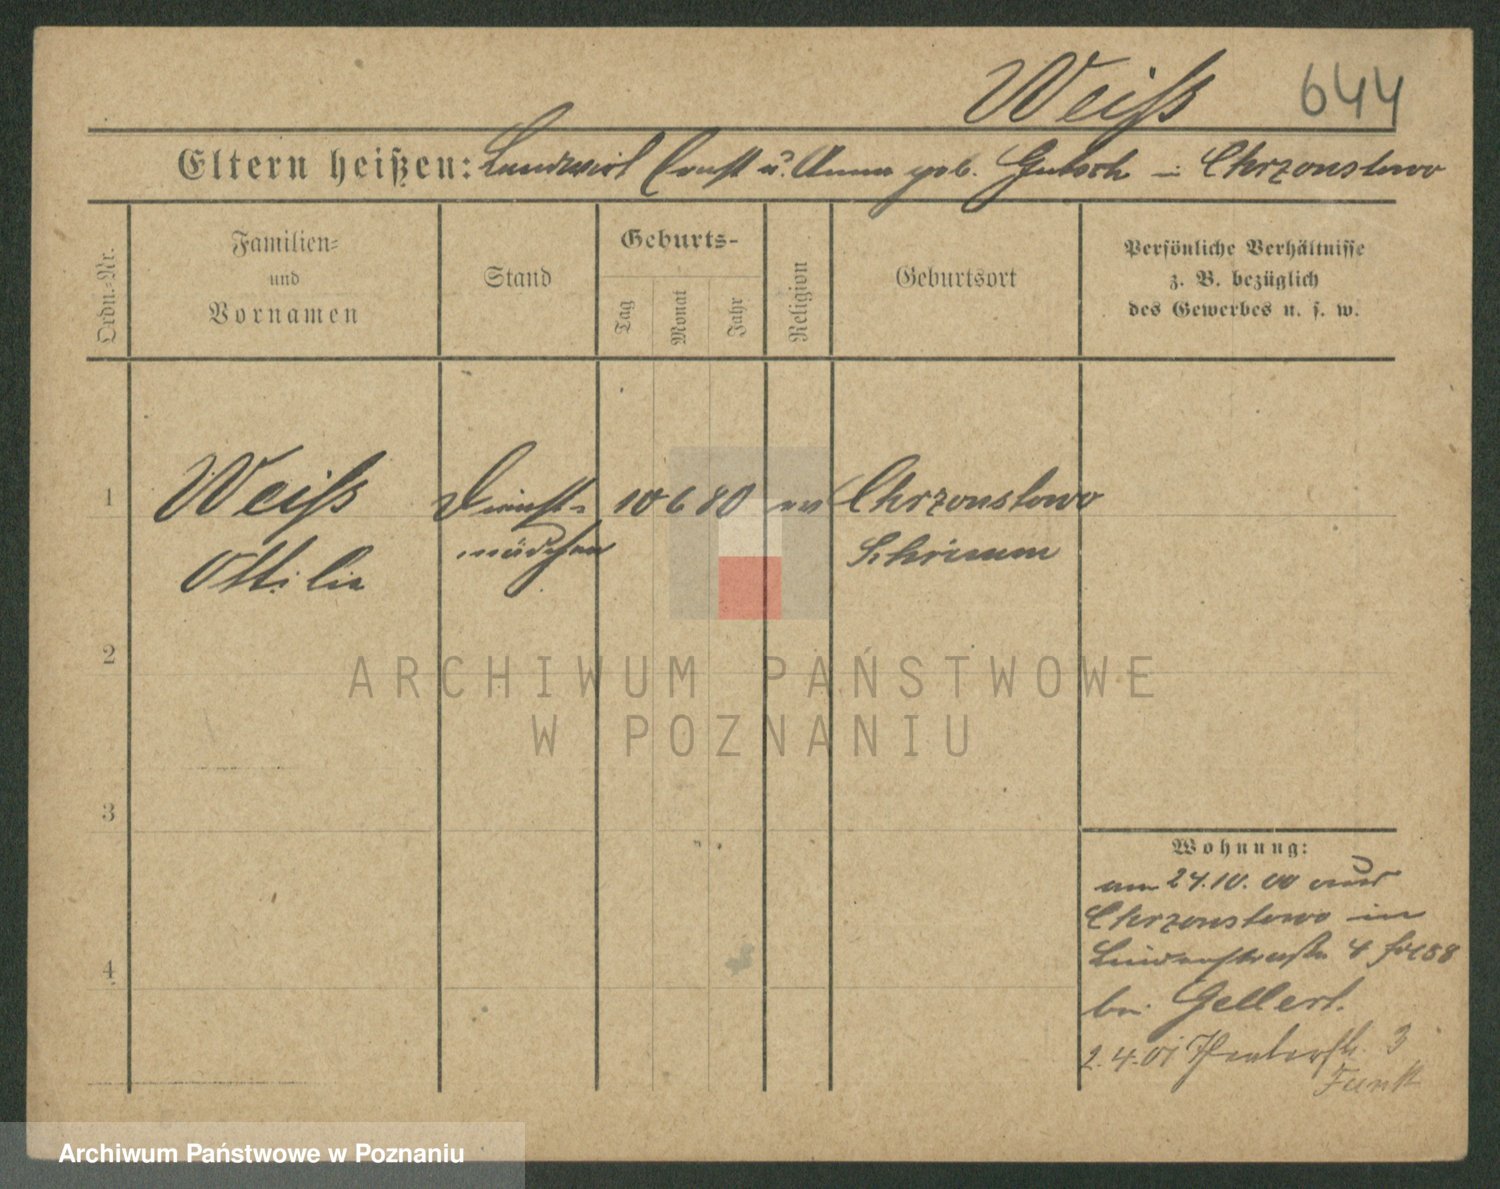 Weiß 644
Eltern heißen: Landwirt Ernst u. Anna geb. Gutsch in Chrzonstowo
Ordn.-Nr.
Familien-
und
Vornamen
Stand
Geburts-
Tag
Monat
Jahr
Religion
Geburtsort
Persönliche Verhältnisse
z. B. bezüglich
des Gewerbes u. s. w.
1 Weiß Dienst- 10 6 80 ev Chrzonstowo
Ottilie mädchen Schrimm
2
ARCHIWUM PAŃSTWOWE
W POZNANIU
3
Wohnung:
am 24.10.00 aus
Chrzonstowo in
Lindenstraße 4
4
bei Gellert.
2.4.01 Theaterstr. 3
Funk
Archiwum Państwowe w Poznaniu